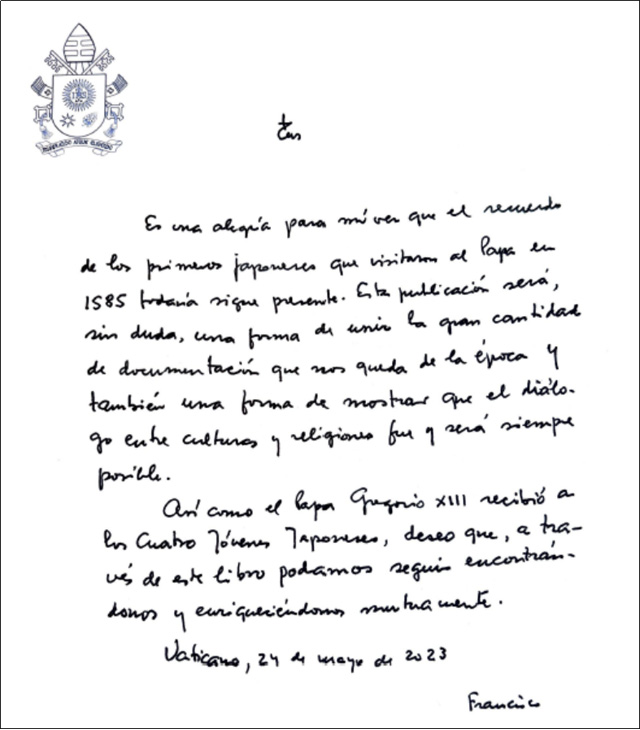 MISERANDO ATQUE ELIGENDO
Es una alegría para mí ver que el recuerdo
de los primeros japoneses que visitaron al Papa en
1585 todavía sigue presente. Esta publicación será,
sin duda, una forma de unir la gran cantidad
de documentación que nos queda de la época y
también una forma de mostrar que el diálo-
go entre culturas y religiones fue y será siempre
posible.
Así como el Papa Gregorio XIII recibió a
los Cuatro Jóvenes Japoneses, deseo que, a tra-
vés de este libro podamos seguir encontrán-
donos y enriqueciéndonos mutuamente.
Vaticano, 24 de mayo de 2023
Francisco